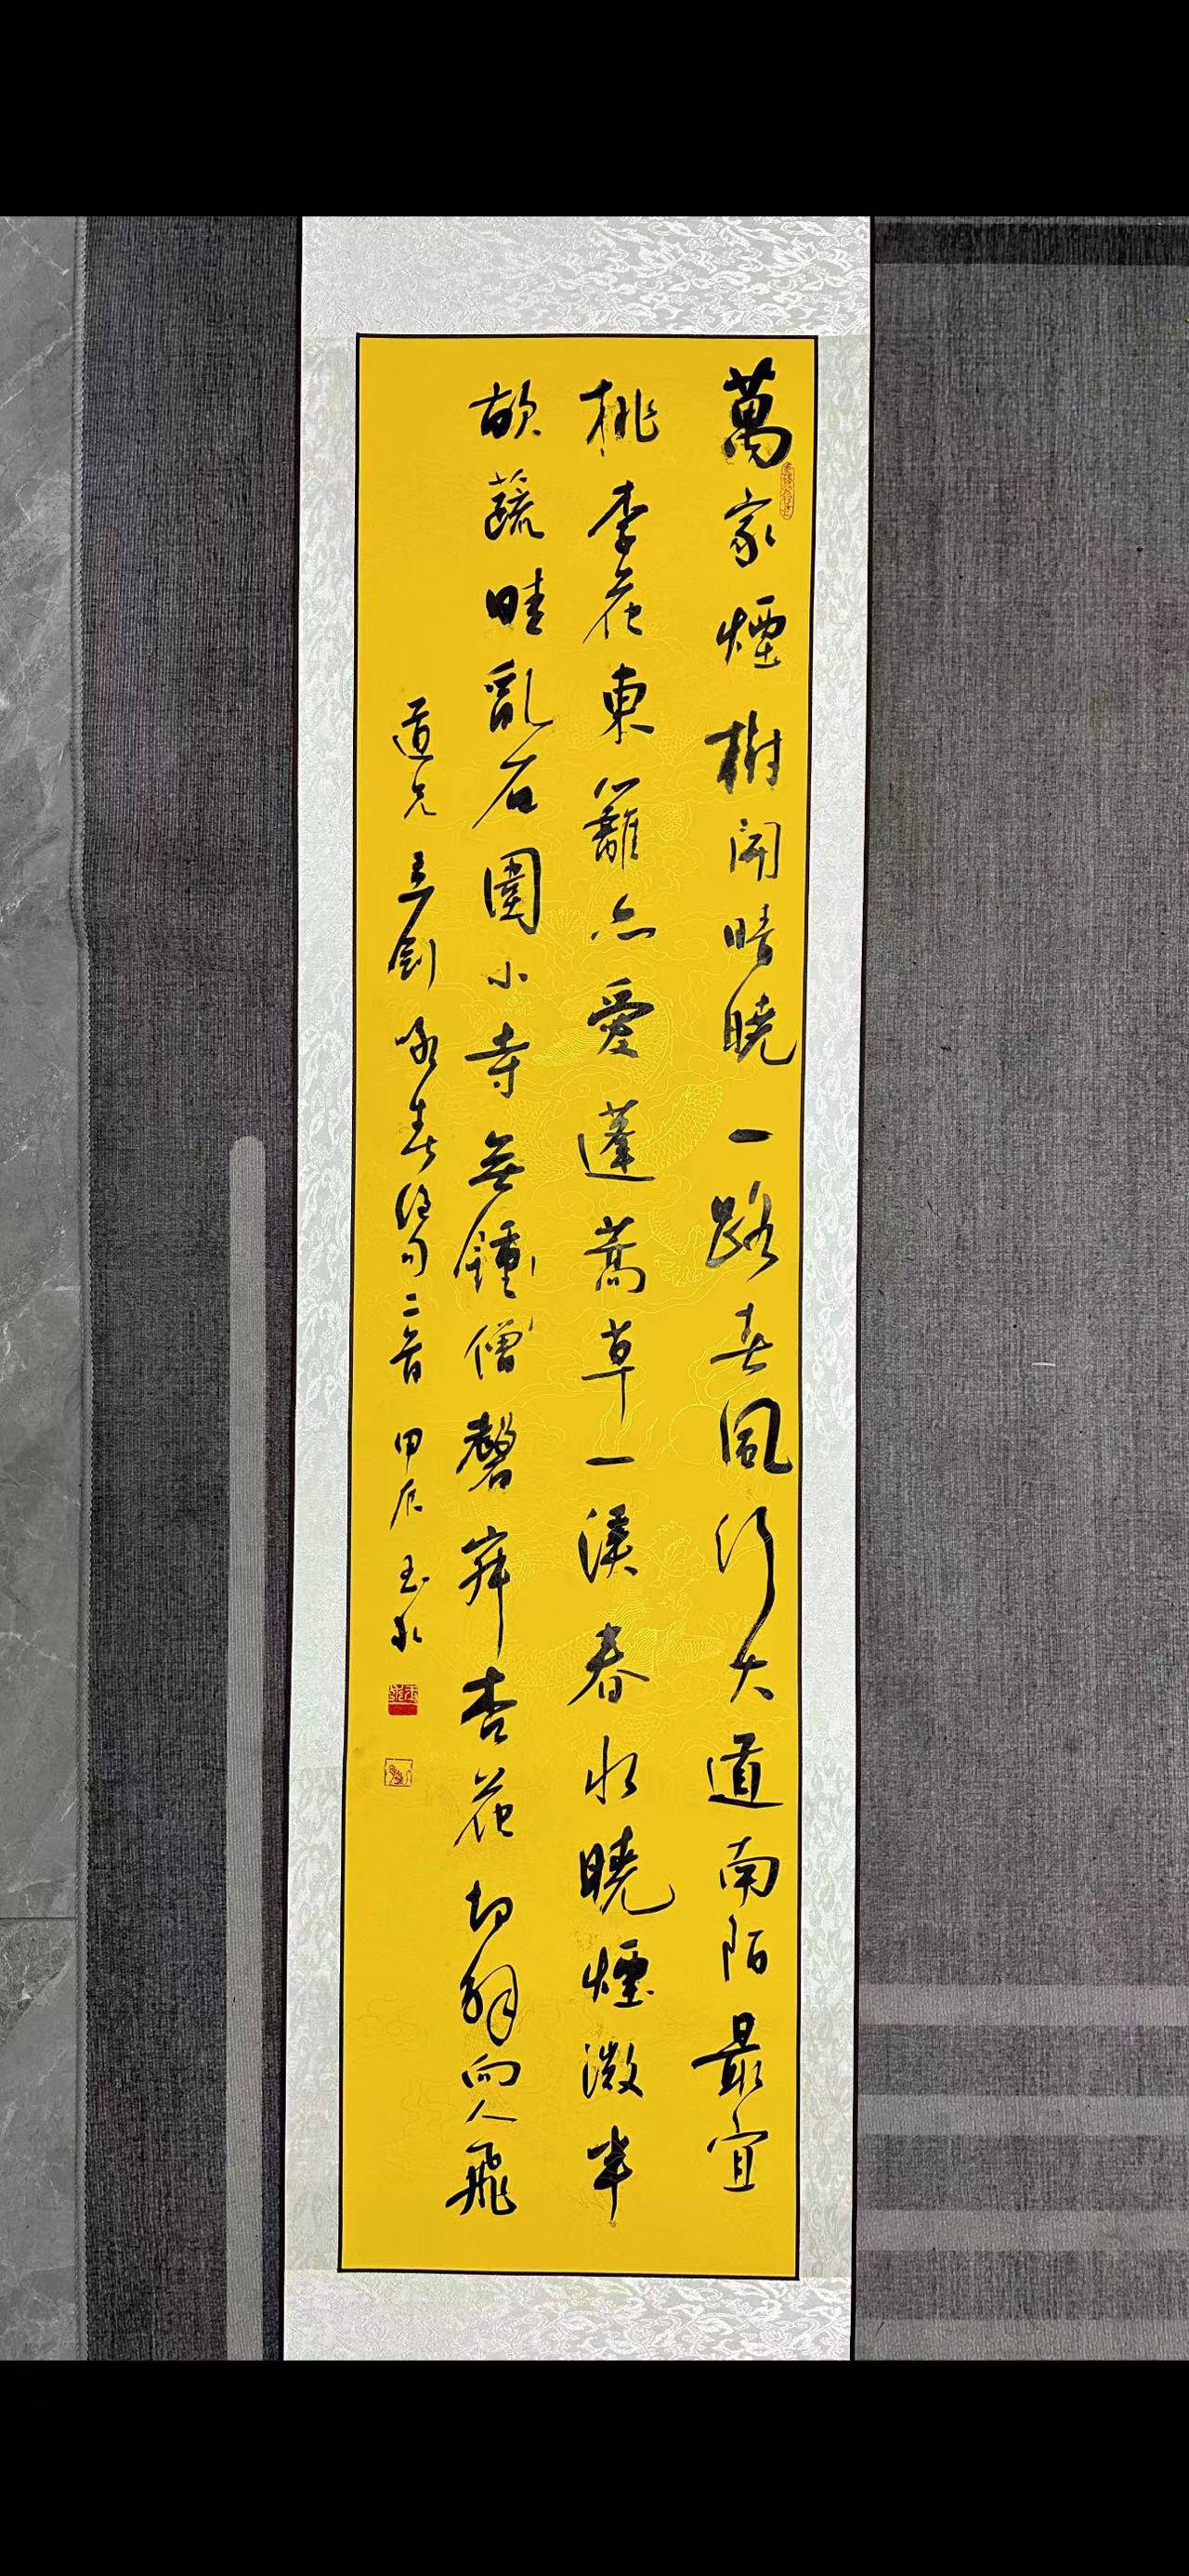 萬家煙樹開晴曉一路春風行大道南陌最宜
桃李花東籬亦愛蓬蒿草一溪春水曉煙微半
畝蔬畦亂石圍小寺無鐘僧磬寂杏花切解向人飛
道兄 吟春絕句二首 甲辰 玉